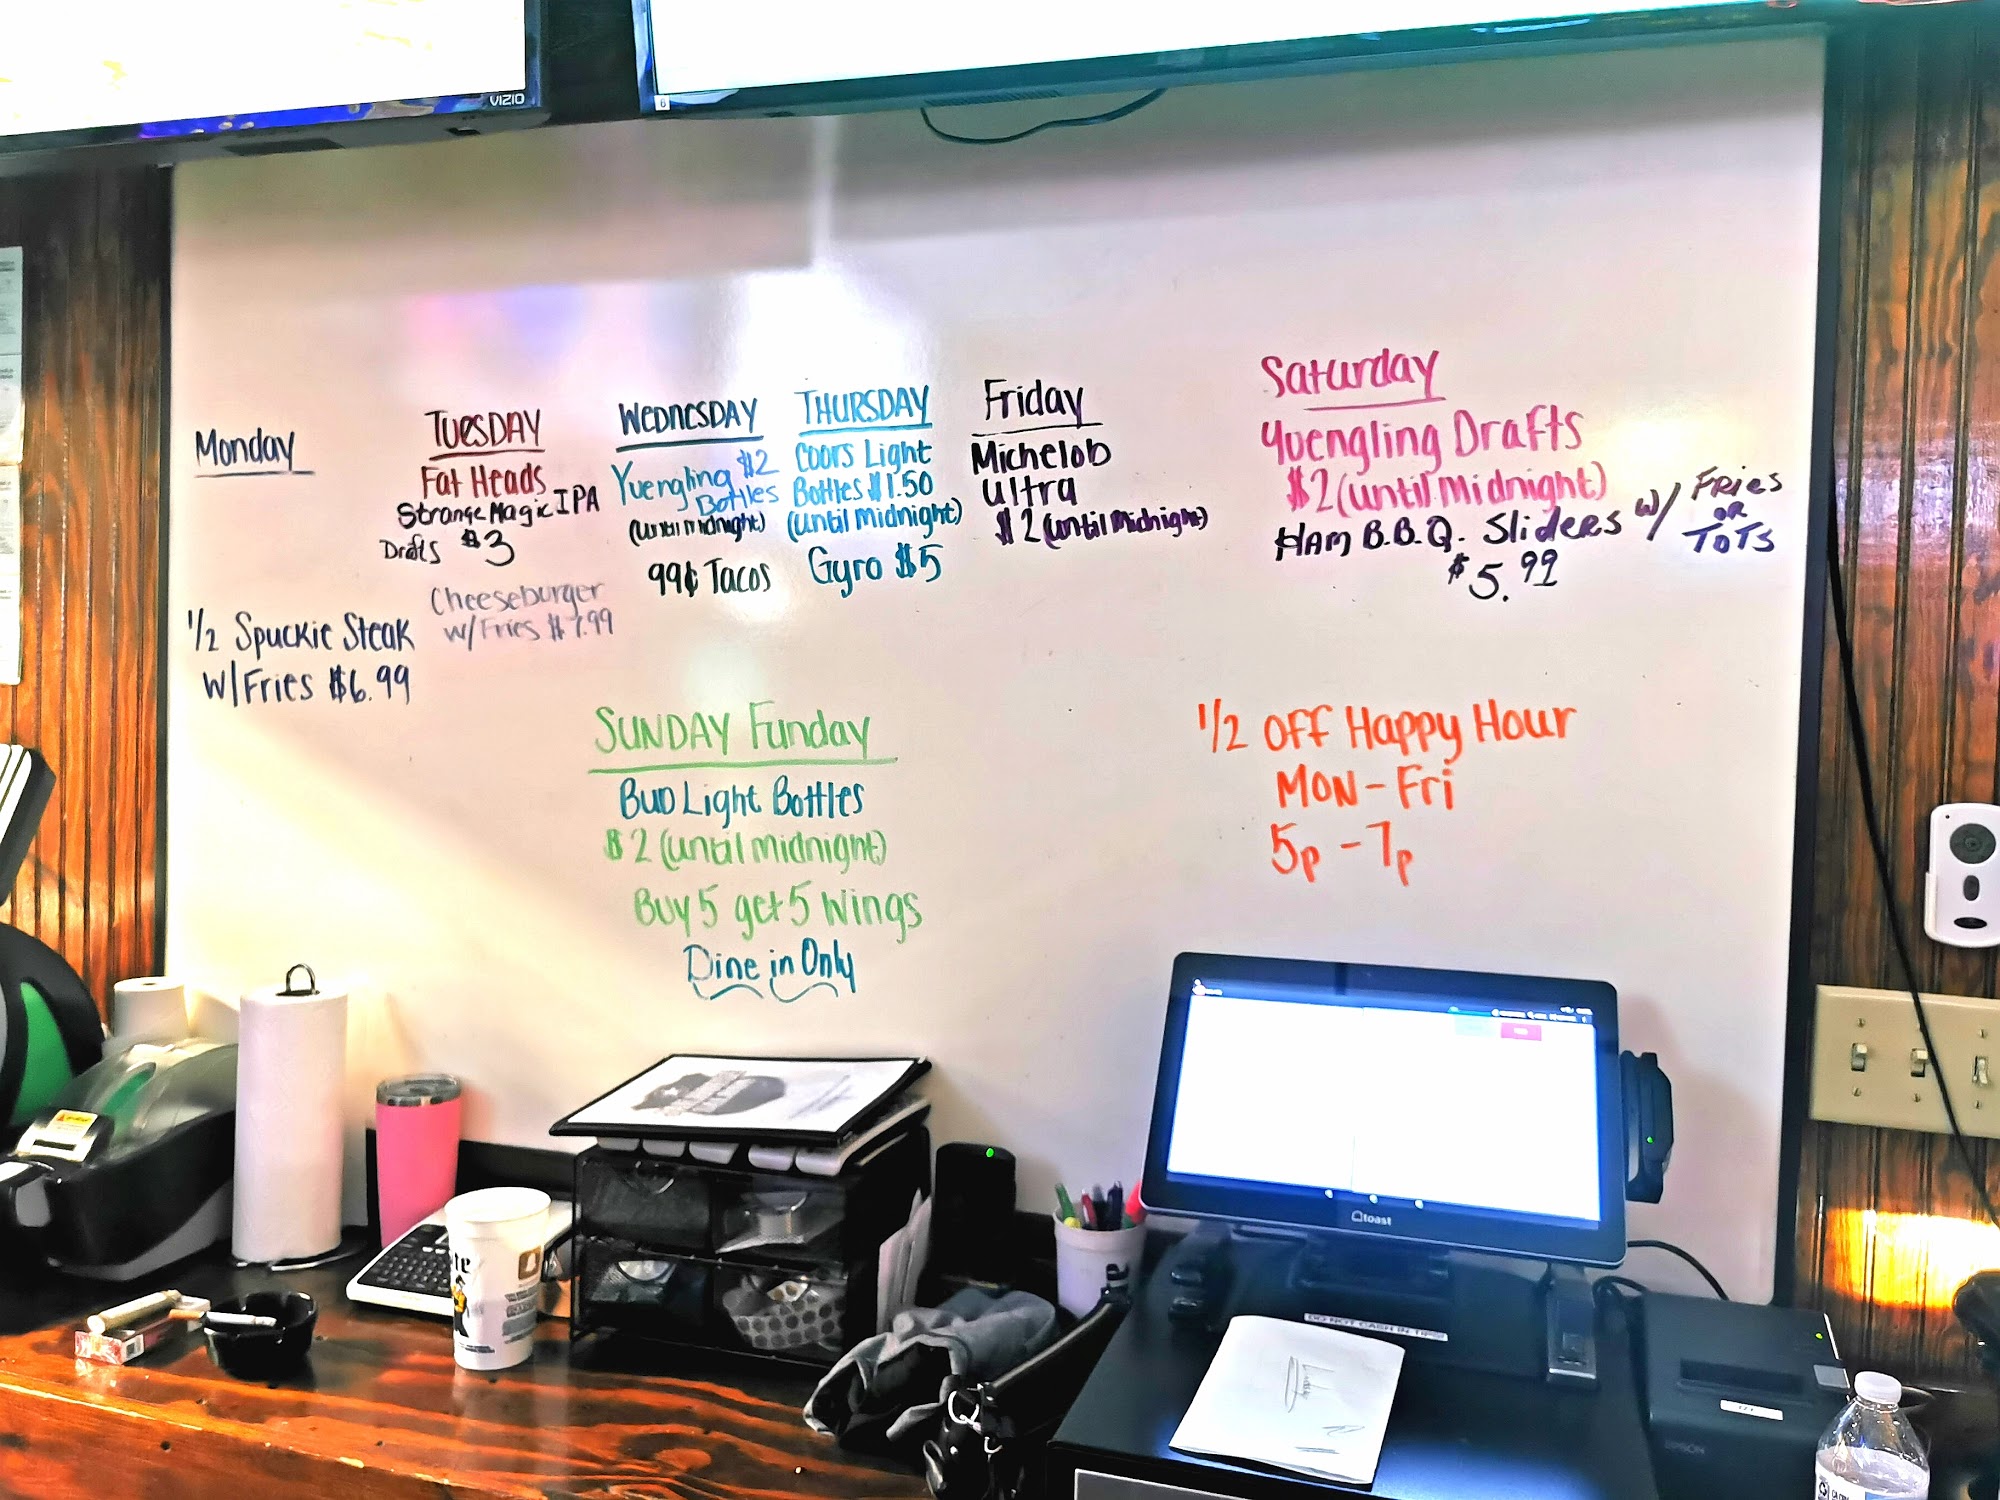 VIZIO
Monday
1/2 Spuckie Steak
W/Fries $6.99
TUESDAY
Fat Heads
Strange Magic IPA
Drafts $3
Cheeseburger
w/Fries $7.99
WEDNESDAY
Yuengling $2
Bottles
(until midnight)
99¢ Tacos
THURSDAY
Coors Light
Bottles $1.50
(until midnight)
Gyro $5
Friday
Michelob
Ultra
$2 (until midnight)
Saturday
Yuengling Drafts
$2 (until midnight)
HAM B.B.Q. Sliders w/ FRies
OR
TOTS
$5.99
SUNDAY Funday
Bud Light Bottles
$2 (until midnight)
Buy 5 get 5 Wings
Dine in Only
1/2 OFF Happy Hour
MON - Fri
5p - 7p
toast
DO NOT CASH IN TIPS
EPSON